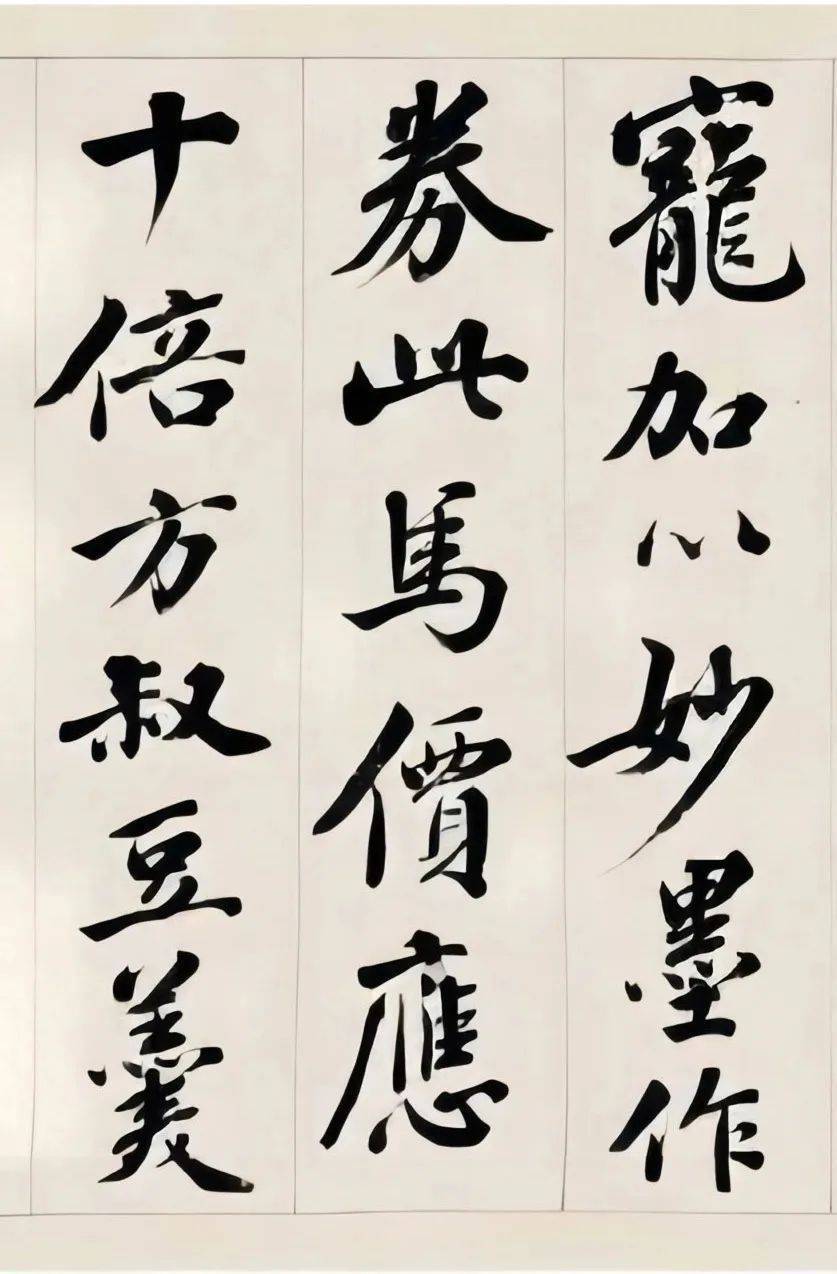 寵加以妙墨作
券此馬價應
十倍方叔豆羹